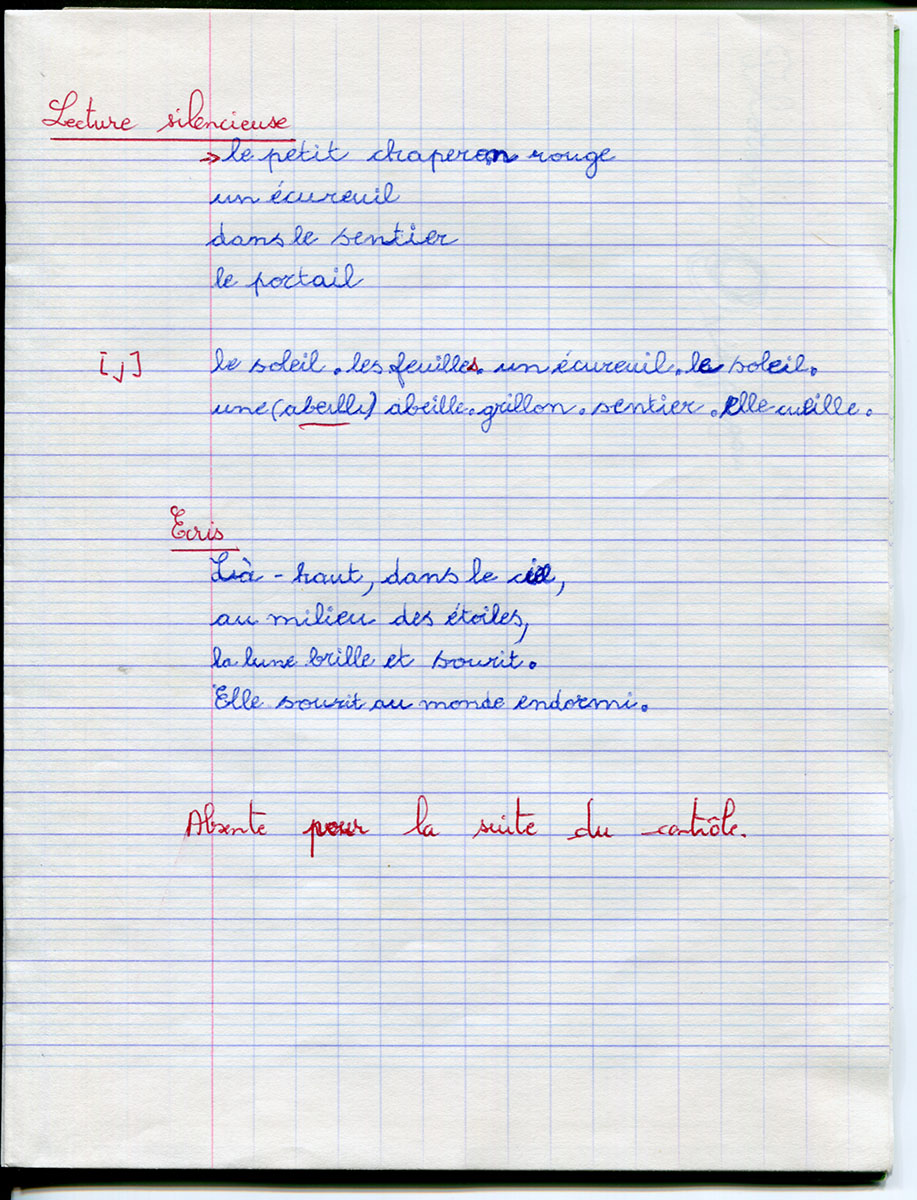 Lecture silencieuse
→ le petit chaperon rouge
un écureuil
dans le sentier
le portail
[j] le soleil. les feuilles. un écureuil. le soleil.
une (abeille) abeille. grillon. sentier. elle cueille.
Ecris
Là-haut, dans le ciel,
au milieu des étoiles,
la lune brille et sourit.
Elle sourit au monde endormi.
Absente pour la suite du contrôle.